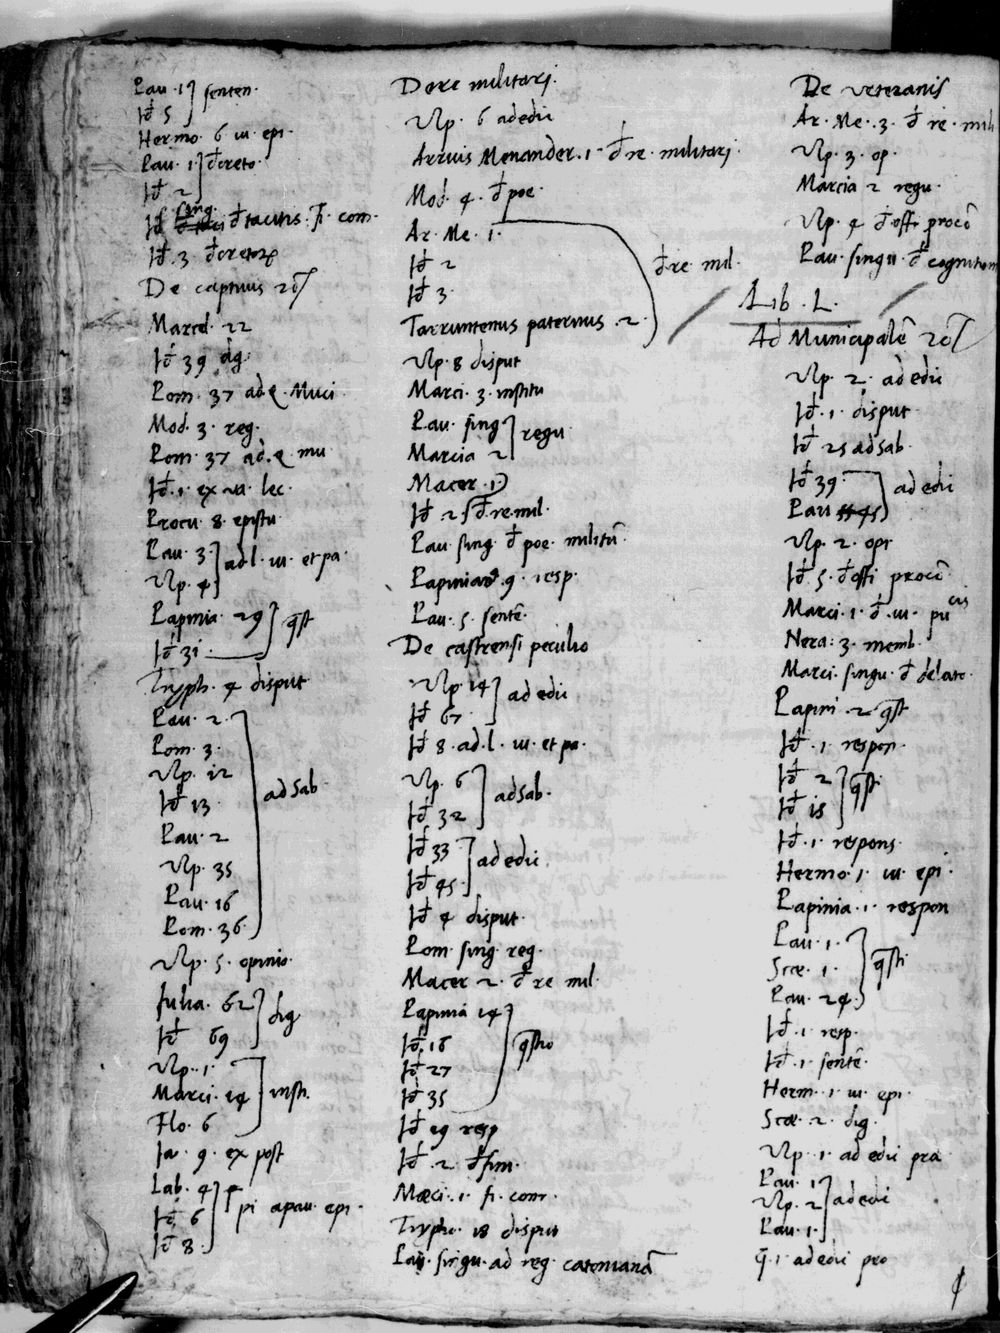 Pau. 1
Id 5
senten.
Hermo. 6 iu. epi.
Pau. 1
Id 2
decreto.
Id sing. d tacitis. fi. com.
Id. 3 decretor
De captivis 
Marcel. 22
Id 39 dig.
Pom. 37 ad. q. Muci
Mod. 3. reg.
Pom. 37 ad. q. mu
Id. 1 ex va. lec.
Procu. 8. epistu.
Pau. 3
Ulp. 4
ad l. iu. et pa.
Papinia. 29
Id 31.
qst
Tryph. 4 disput
Pau. 2.
Pom. 3.
Ulp. 12
Id 13
Pau. 2
Ulp. 35
Pau. 16
Pom. 36.
ad sab.
Ulp. 5. opinio.
Julia. 62
Id 69
dig
Ulp. 1.
Marci. 14
Flo. 6
insti.
Ja. 9. ex post
Lab. 4
Id. 6
Id 8.
pi apau. epi.
De re militari.
Ulp. 6 ad edic
Arrius Menander. 1. d re. militari.
Mod. 4. d poe.
Ar. Me. 1.
Id 2
Id 3.
Tarruntenus paternus. 2.
d re mil.
Ulp. 8 disput
Marci. 3. institu
Pau. sing
Marcia 2
regu
Macer. 1
Id. 2
d re mil.
Pau. sing. d poe. militu
Papinia. 9. resp.
Pau. 5. sente.
De castrensi peculio
Ulp 14
Id 67.
ad edic
Id 8. ad. l. iu. et pa.
Ulp. 6
Id. 32
ad sab.
Id 33
Id 45
ad edic.
Id 4 disput.
Pom. sing. reg.
Macer 2. d re mil.
Papinia 14
Id. 16
Id. 27
Id 35
qstio
Id 19 resp
Id. 2. dfini.
Maeci. 1. fi. com.
Trypho. 18 disput
Pau. singu. ad reg. catoniana
De veteranis
Ar. Me. 3. d re. mili
Ulp. 3. op.
Marcia 2 regu.
Ulp. 4 d offi proco
Pau. singu. d cognition
Lib. L.
Ad Municipale 
Ulp. 2. ad edic
Id. 1. disput.
Id 25 ad sab.
Id 39.
Pau 45
ad edic
Ulp. 2. opi.
Id. 5. d offi proco.
Marci. 1. d. iu. pu cis
Nera: 3. memb.
Marci. singu. d delato.
Papini. 2 qst
Id. 1. respon.
Id 2
Id 15
qst.
Id. 1. respons.
Hermo. 1. iu. epi.
Papinia. 1. respon
Pau. 1.
Scae. 1.
Pau. 24.
qsti.
Id. 1. resp.
Id. 1. sente.
Herm. 1. iu. epi.
Scae. 2. dig.
Ulp. 1. ad edic pra
Pau. 1
Ulp. 2
Pau. 1.
ad edic
g. 1 ad edic pro